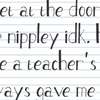 et at the door
nippley idk. I
e a teacher's
ways gave me